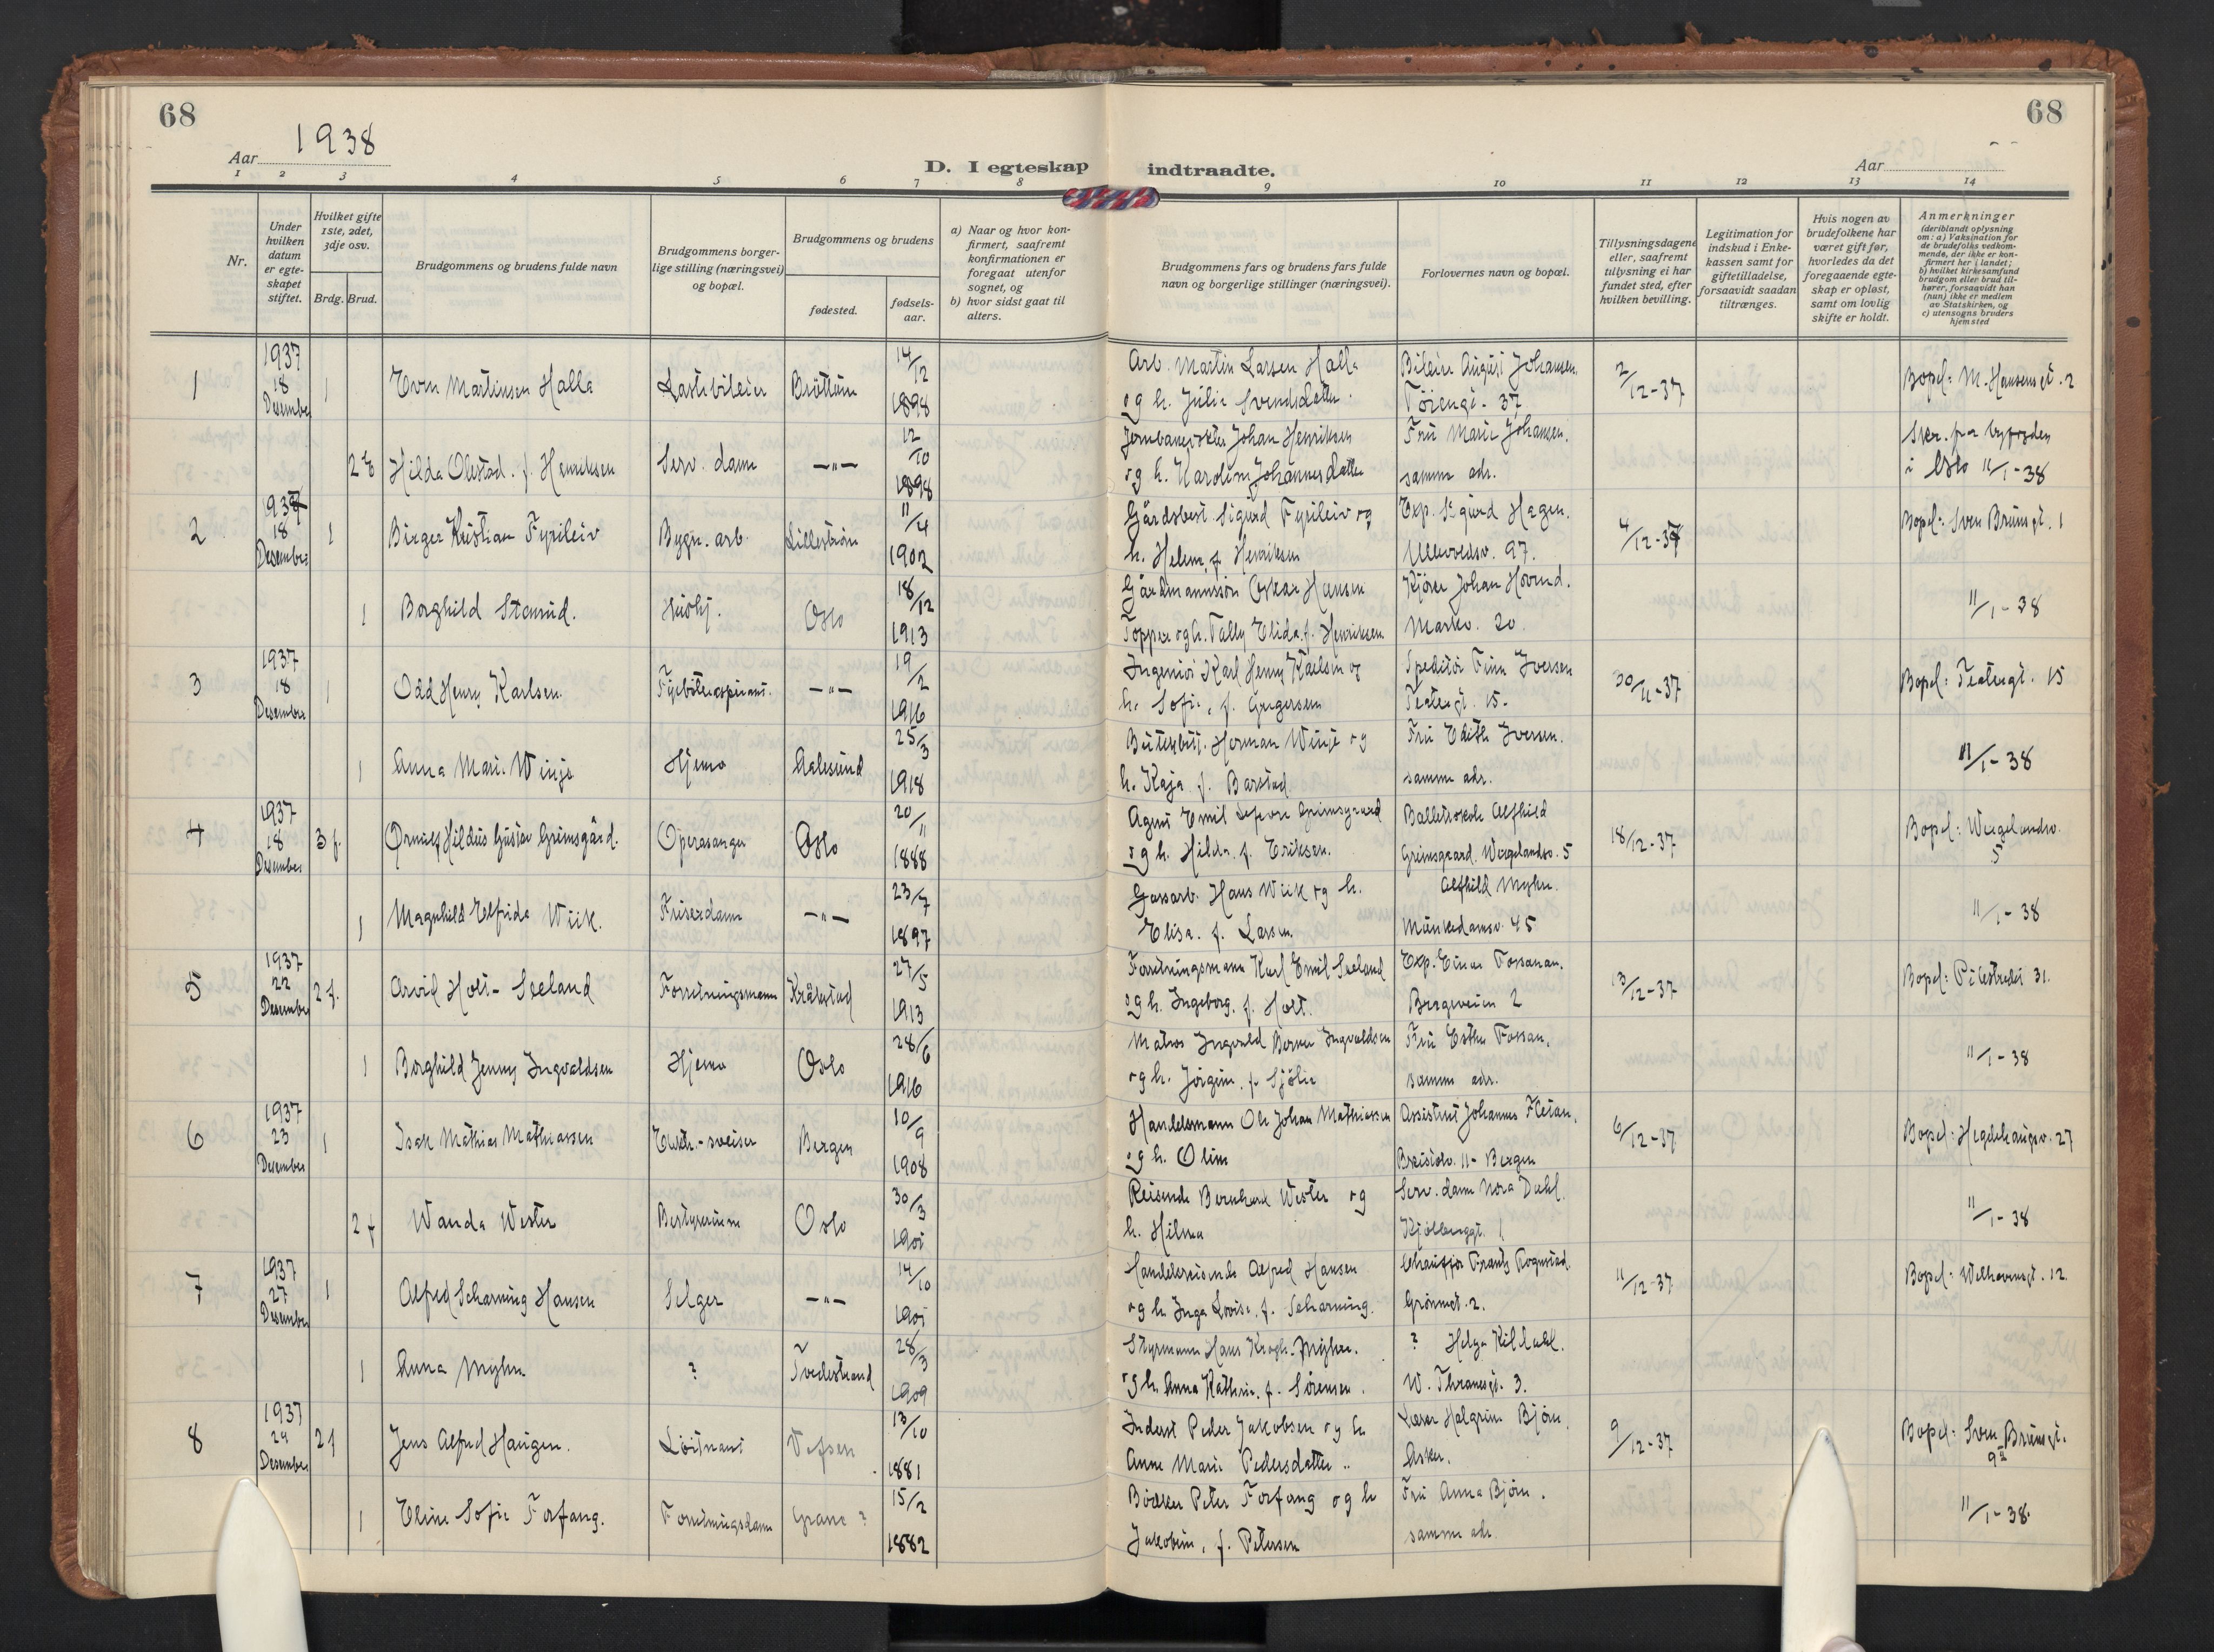 68
68
Aar 1938
D. I egteskap indtraadte.
Aar
1 2 3 4 5 6 7 8 9 10 11 12 13 14
Nr.
Under hvilken datum er egteskapet stiftet.
Hvilket gifte 1ste, 2det, 3dje osv.
Brdg. Brud.
Brudgommens og brudens fulde navn
Brudgommens borgerlige stilling (næringsvei) og bopæl.
Brudgommens og brudens
fødested.
fødselsaar.
a) Naar og hvor konfirmert, saafremt konfirmationen er foregaat utenfor sognet, og
b) hvor sidst gaat til alters.
Brudgommens fars og brudens fars fulde navn og borgerlige stillinger (næringsvei).
Forlovernes navn og bopæl.
Tillysningsdagene eller, saafremt tillysning ei har fundet sted, efter hvilken bevilling.
Legitimation for indskud i Enkekassen samt for giftetilladelse, forsaavidt saadan tiltrænges.
Hvis nogen av brudefolkene har været gift før, hvorledes da det foregaaende egteskap er opløst, samt om lovlig skifte er holdt.
Anmerkninger (deriblandt oplysning om: a) Vaksination for de brudefolks vedkommende, der ikke er konfirmert her i landet; b) hvilket kirkesamfund brudgom eller brud tilhører, forsaavidt han (hun) ikke er medlem av Statskirken, og c) utensogns bruders hjemsted
1 1937 18 Desember 1 Martinsen Halla Lastebileier 14/12 1898 Arb. Martin Larsen Halla og h. Julie Svendsdatter. Bileier August Johansen. 37. 2/12-37 Bopel: M. Hansensgt. 2
Hilda Olestad. f. Henriksen Serv. dame —"— 12/10 1898 Johan Henriksen og h. Karoline Johannesdatter Fru Marie Johansen. samme adr. i Oslo 11/1-38
2 1937 18 Desember 1 Birger Kristian Fyrileiv Bygn. arb. Lillestrøm 11/4 1902 Gårdsbest. Sigurd Fyrileiv og h. Helene, f. Henriksen Exp. Sigurd Hagen. Ullevoldsv. 97. 4/12-37 Bopel: Sven Bruunsgt. 1
1 Borghild Stensrud. Hushj. Oslo 18/12 1913 Oskar Hansen Topper og h. Elida f. Henriksen Kjører Johan Hovind. Markv. 20. 11/1-38
3 1937 18 Desember 1 Odd Henry Karlsen. —"— 19/2 1916 Ingeniør Karl Henry Karlsen og h. Sofie, f. Gregersen Speditør Finn Iversen Teatergt. 15. 30/11-37 Bopel: Teatergt. 15
1 Anna Mari. Winje Hjemv Aalesund 25/3 1918 Herman Winje og h. Kaja f. Barstad Fru Edith Iversen. samme adr. 11/1-38
4 1937 18 Desember 3 f. Grimsgård. Operasanger Oslo 20/11 1888 Agent Emil Grimsgaard og h. Hilda. f. Eriksen. Alfhild Grimsgaard. Wergelandsv. 5 18/12-37 Bopel: Wergelandsv. 5
1 Magnhild Elfrida Wiik. Friserdame —"— 23/7 1897 Gassarb. Hans Wiik og h. Elisa. f. Larsen Alfhild Myhre. Munkedamsv. 45 11/1-38
5 1937 22 Desember 2 f. Arvid Holt-Seeland Forretningsmann Kråkstad 27/5 1913 Forretningsmann Karl Emil Seeland og h. Ingeborg. f. Holt. Exp. Einar Fossan. 2 13/12-37 Bopel: Pilestredet 31.
1 Borghild Jenny Ingvaldsen Hjemv Oslo 28/6 1916 Matros Ingvald Ingvaldsen og h. Jørgine. f. Sjølie Fru Esther Fossan, samme adr. 11/1-38
6 1937 23 Desember 1 Isak Mathias Mathiassen Elektr.-sveiser Bergen 10/9 1908 Handelsmann Ole Johan Mathiassen og h. Oline Assistent Johannes 11 - Bergen 6/12-37 Bopel: Hegdehaugsv. 27
2 f Wanda Wester Bestyrerinne Oslo 30/3 1901 Reisende Bernhard Wester og h. Hilma Serv. dame Nora Dahl. 1 11/1-38
7 1937 27 Desember 1 Alfred Scharning Hansen Selger —"— 14/10 1901 Handelsreisende Alfred Hansen og h Inga Lovise. f. Scharning. Chauffør Frantz Rognstad. Grønnegt. 2. 11/12-37 Bopel: Welhavensgt. 12.
1 Anna Myhre ? Tvedestrand 28/3 1909 Styrmann Hans Krogh-Myhre. og h. Anna Kathrin. f. Sørensen. ? Helga Kildahl. W. Thranesgt. 3.
8 1937 29 Desember 2 f Jens Alfred Haugen. Løitnant Vefsen 13/10 1881 Inderst Peder Jakobsen og h Anne Marie Pedersdatter Lærer Halgrim Bjørn. Asker. 9/12-37 Bopel: Sven Bruunsgt. 9a
1 Eline Sofie Forfang. Forretningsdame Grane ? 15/2 1882 Bødker Peter Forfang og h Jakobine, f. Petersen Fru Anna Bjørn. samme adr. 11/1-38.